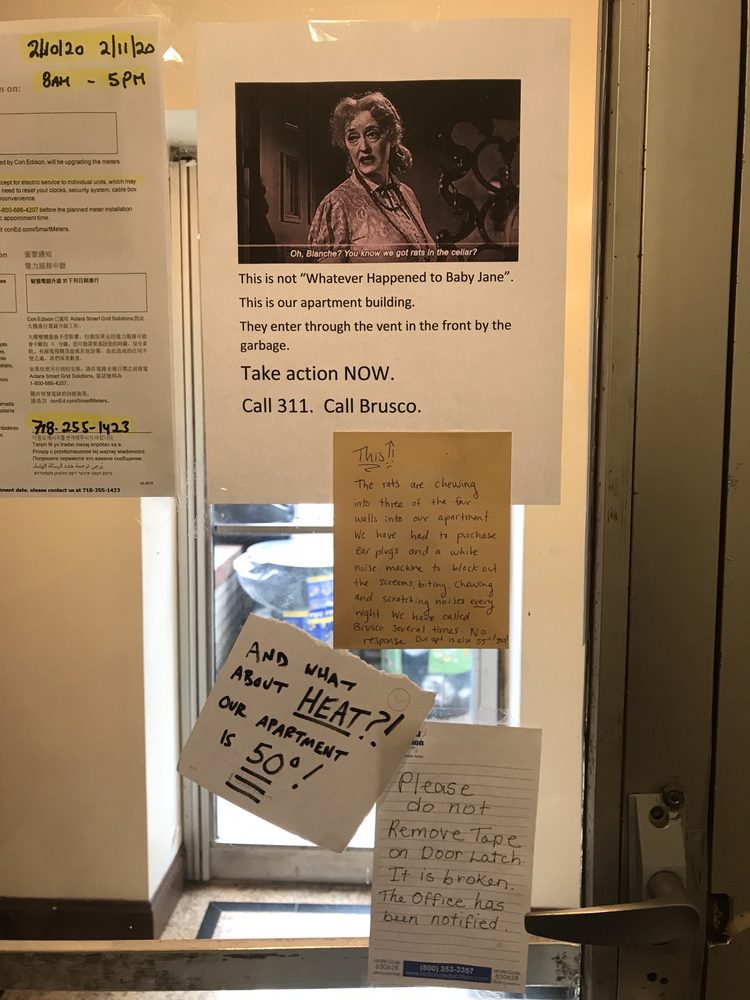 2/10/20 2/11/20
8AM - 5PM
n on:
ed by Con Edison, will be upgrading the meters
cept for electric service to individual units, which may
need to reset your clocks, security system, cable box
convenience.
-800-686-4207 before the planned meter installation
appointment time.
t conEd.com/SmartMeters.
重要通知
電力服務中斷
1-800-686-4207.
conEd.com/SmartMeters.
718-255-1423
Tanpri fè yo tradwi mesaj enpòtan sa a.
Proszę o przetłumaczenie tej ważnej wiadomości.
Попросите перевести это важное сообщение.
يرجى ترجمة هذه الرسالة الهامة.
tment date, please contact us at 718-255-1423
Oh, Blanche? You know we got rats in the cellar?
This is not “Whatever Happened to Baby Jane”.
This is our apartment building.
They enter through the vent in the front by the
garbage.
Take action NOW.
Call 311. Call Brusco.
This!!
The rats are chewing
into three of the four
walls into our apartment
We have had to purchase
ear plugs and a white
noise machine to block out
the screams, biting, chewing
and scratching noises every
night. We have called
Brusco several times No
response Our apt. is also 55°
AND WHAT
ABOUT HEAT?!
OUR APARTMENT
IS 50°!
Please
do not
Remove Tape
on Door Latch.
It is broken.
The Office has
been notified.
630628
(800) 353-3357
630628